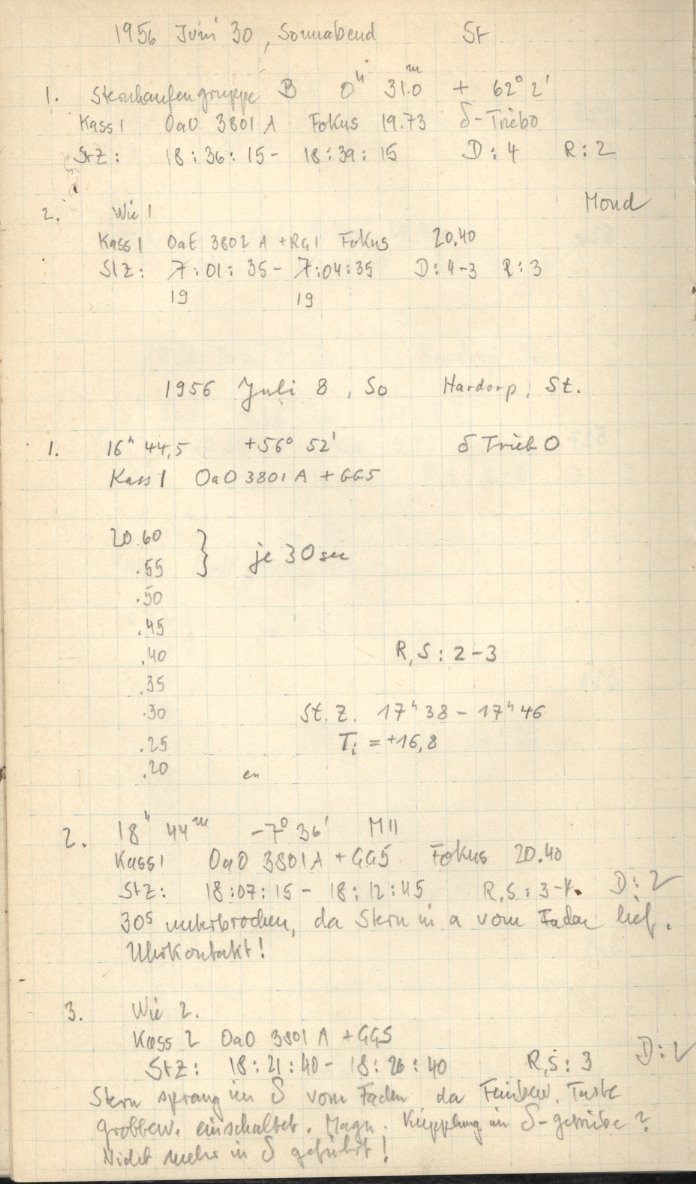 1956 Juni 30, Sonnabend St
1. Sternhaufengruppe B 0ʰ 31.0ᵐ + 62° 2'
Kass 1 OaO 3801 A Fokus 19.73 δ-Trieb 0
StZ: 18:36:15 - 18:39:15 D: 4 R: 2
2. Wie 1 Mond
Kass 1 OaE 3802 A + RG1 Fokus 20.40
StZ: 7:01:35 - 7:04:35 D: 4-3 R: 3
19 19
1956 Juli 8, So Hardorp, St.
1. 16ʰ 44,5 +56° 52' δ Trieb 0
Kass 1 OaO 3801 A + GG5
20.60
.55 } je 30 sec
.50
.45
.40 R,S: 2-3
.35
.30 St. Z. 17ʰ 38 - 17ʰ 46
.25 Ti = +16,8
.20
2. 18ʰ 44ᵐ -7° 36' M11
Kass 1 OaO 3801 A + GG5 Fokus 20.40
StZ: 18:07:15 - 18:12:45 R,S: 3-4. D: 2
30ˢ unterbrochen, da Stern in α vom Faden lief.
Uhrkontakt!
3. Wie 2.
Kass 2 OaO 3801 A + GG5
StZ: 18:21:40 - 18:26:40 R,S: 3 D: 2
Stern sprang in δ vom Faden da Feinbew. Taste
Grobbew. einschaltet. Magn. Kupplung im δ-getriebe?
Nicht mehr in δ geführt!